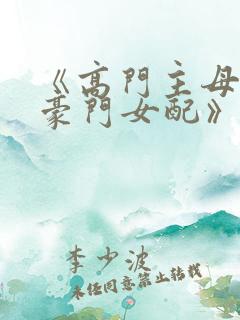 《高門主母
豪門女配》
李少波
未经同意禁止转载